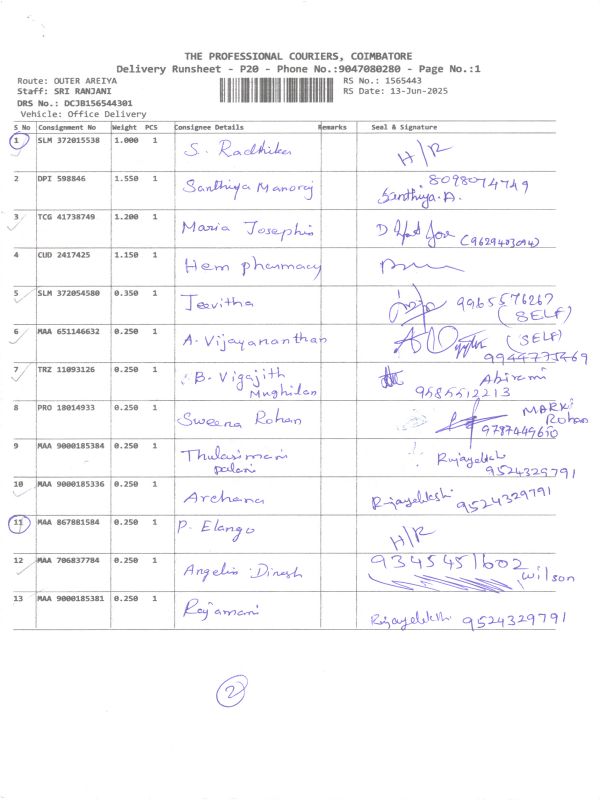 THE PROFESSIONAL COURIERS, COIMBATORE
Delivery Runsheet - P20 - Phone No.:9047080280 - Page No.:1
Route: OUTER AREIYA RS No.: 1565443
Staff: SRI RANJANI RS Date: 13-Jun-2025
DRS No.: DCJB156544301
Vehicle: Office Delivery
S No Consignment No Weight PCS Consignee Details Remarks Seal & Signature
1 SLM 372015538 1.000 1 S. Radhika H/R
2 DPI 598846 1.550 1 Santhiya Manoraj 8098074749
Santhiya.A.
3 TCG 41738749 1.200 1 Maria Josephin (9629403094)
4 CUD 2417425 1.150 1 Hem pharmacy
5 SLM 372054580 0.350 1 Jeevitha 9965576267
(SELF)
6 MAA 651146632 0.250 1 A. Vijayananthan (SELF)
9944775469
7 TRZ 11093126 0.250 1 B. Vigajith Abirami
Mughilan 9585512213
8 PRO 18014933 0.250 1 Sweena Rohan MARK
Rohan
9787449610
9 MAA 9000185384 0.250 1 Thulasimani Rajayelakshi
palani 9524329791
10 MAA 9000185336 0.250 1 Archana Rajayelekshi 9524329791
11 MAA 867881584 0.250 1 P. Elango H/R
12 MAA 706837784 0.250 1 Angelin Dinesh 9345451602
Wilson
13 MAA 9000185381 0.250 1 Rajamani Rajayelekshi 9524329791
2